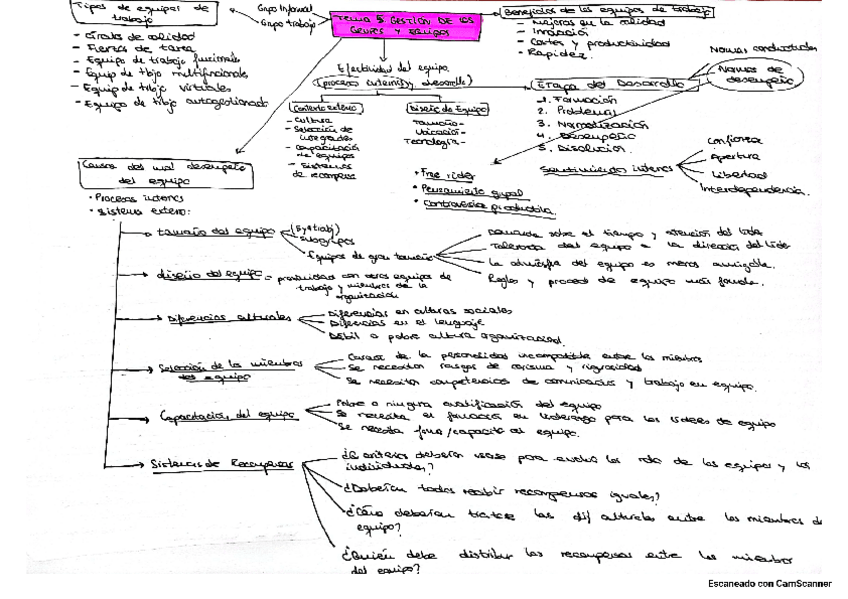 Tipos de equipos de trabajo
- Círculos de calidad
- Fuerzas de tarea
- Equipo de trabajo funcionales
- Equip de tbjo multifncionales
- Equip de tbjo virtuales
- Equipo de tbjo autogestionado
Grupo Informal
Grupo trabajo
Tema 5 GESTIÓN DE LOS
GRUPOS Y EQUIPOS
Beneficios de los equipos de trabajo
- Mejoras en la calidad
- Innovación
- Costes y productividad
- Rapidez
Efectividad del equipo
(procesos internos y desarrollo)
Contexto externo
- Cultura
- Selección de
- Capacitación de equipos
- Sistemas de recompensa
Diseño de Equipo
Tamaño-
Ubicación-
Tecnología-
Etapa del Desarrollo
1. Formación
2. Problemas
3. Normalización
4. Desempeño
5. Disolución
Normas conductuales
Normas de desempeño
Sentimientos internos
Confianza
Apertura
Libertad
Interdependencia
• Free rider
• Pensamiento grupal
• Controversia productiva
Causas del mal desempeño
del equipo
• Procesos internos
• Sistema externo:
tamaño del equipo
Subgrupos
Equipos de gran tamaño
Demanda sobre el tiempo y atención del líder
Tolerancia del equipo a la dirección del líder
La atmósfera del equipo es menos amigable.
Reglas y proced de equipo más formales.
diseño del equipo = proximidad con otros equipos de
trabajo y miembros de la
organización
Diferencias culturales
Diferencias en culturas sociales
Diferencias en el lenguaje
Débil o pobre cultura organizacional
Selección de los miembros
del equipo
Causas de la personalidad incompatible entre los miembros
Se necesitan rasgos de carisma y rigurosidad
Se necesitan competencias de comunicación y trabajo en equipo.
Capacitación del equipo
Pobre o ninguna cualificación del equipo
Se necesita en formación en liderazgo para los líderes de equipo
Se necesita forma/capacita al equipo.
Sistemas de Recompensas
¿Q criterios deberían usarse para evaluar los rols de los equipos y los
individuales?
¿Deberían todos recibir recompensas iguales?
¿Cómo deberían tratarse las dif culturales entre los miembros de
equipo?
¿Quién debe distribuir las recompensas entre los miembros
del equipo?
Escaneado con CamScanner